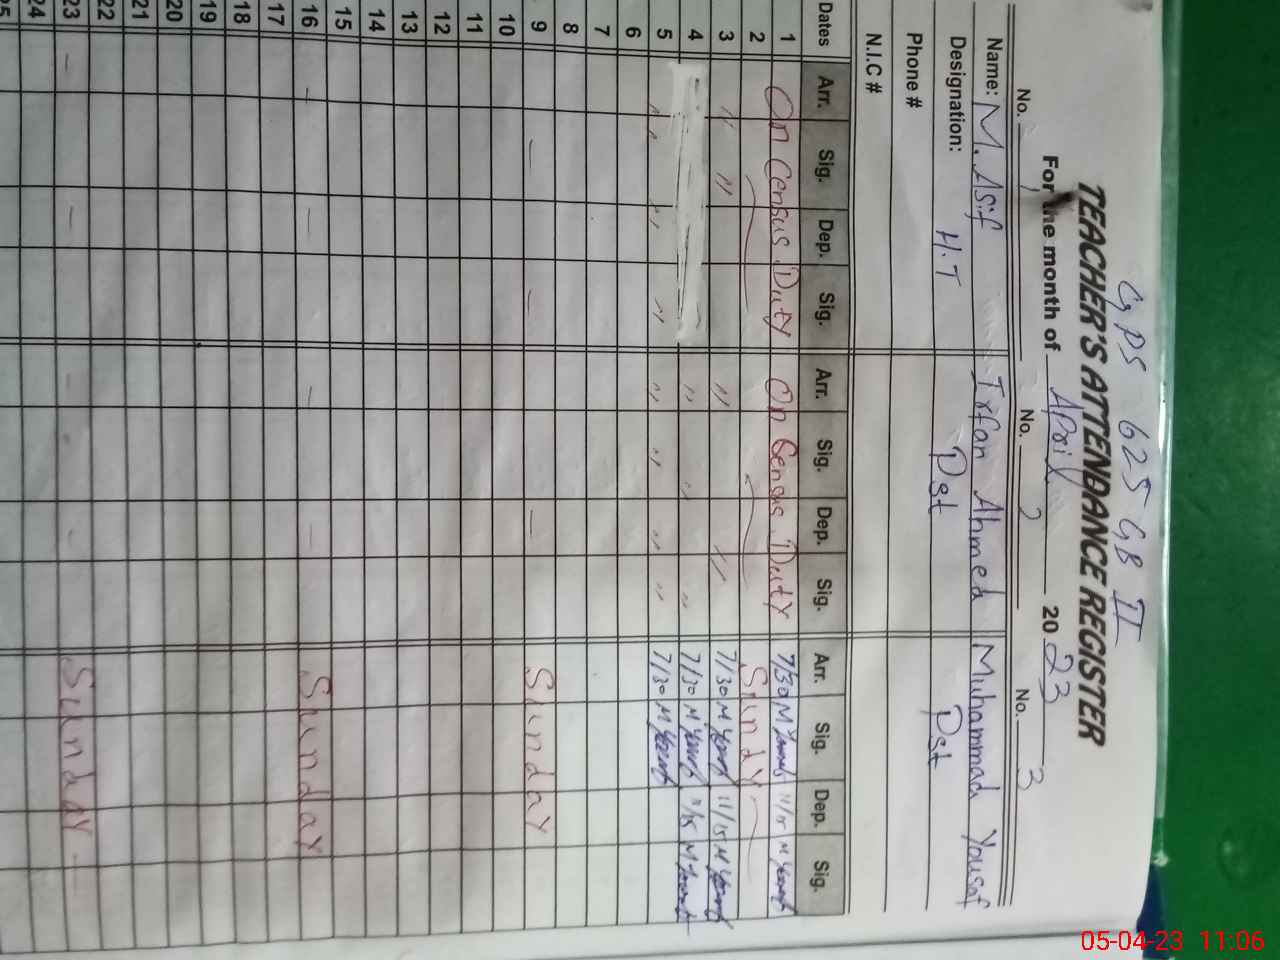 GPS 625 GB II
TEACHER'S ATTENDANCE REGISTER
For the month of April 2023
No. 1 No. 2 No. 3
Name: M. Asif Irfan Ahmed Muhammad Yousaf
Designation: H.T Pst Pst
Phone #
N.I.C #
Dates Arr. Sig. Dep. Sig. Arr. Sig. Dep. Sig. Arr. Sig. Dep. Sig.
1 On Census Duty On Census Duty 7/30 M Yousaf 11/15 M Yousaf
2 SundaY
3 " " " " 7/30 M Yousaf 11/15 M Yousaf
4 " " " 7/30 M Yousaf 11/15 M Yousaf
5 " " " " " " " " 7/30 M Yousaf
6
7
8
9 — — — SundaY
10
11
12
13
14
15
16 — — — — SundaY
17
18
19
20
21
22
23 — — — - SundaY
24
25
05-04-23 11:06